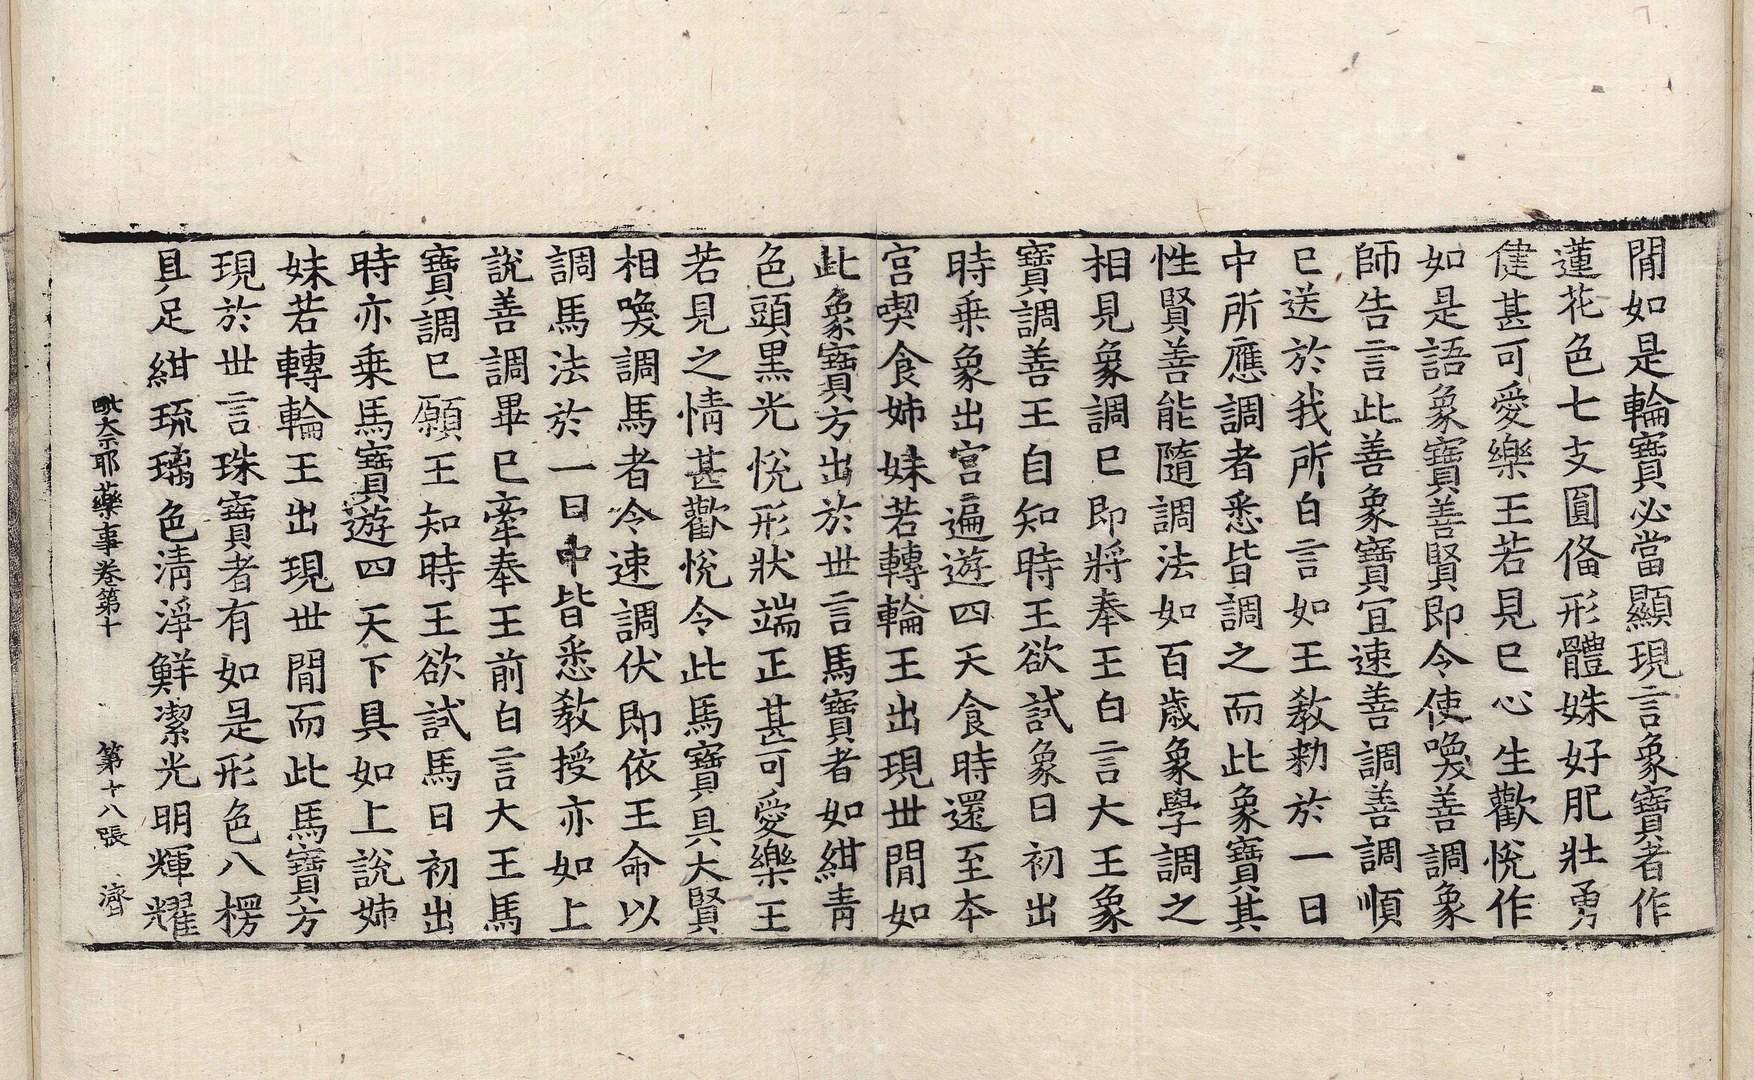 閒如是輪寶必當顯現言象寶者作
蓮花色七支圓俻形體姝好肥壯勇
健甚可愛樂王若見已心生歡悅作
如是語象寶善賢即令使喚善調象
師告言此善象寶宜速善調善調順
已送於我所白言如王教勑於一日
中所應調者悉皆調之而此象寶其
性賢善能隨調法如百歲象學調之
相見象調已即將奉王白言大王象
寶調善王自知時王欲試象日初出
時乗象出宮遍遊四天食時還至本
宮喫食姊妹若轉輪王出現世閒如
此象寶方出於世言馬寶者如紺青
色頭黒光悅形狀端正甚可愛樂王
若見之情甚歡悅令此馬寶具大賢
相喚調馬者令速調伏即依王命以
調馬法於一日中皆悉教授亦如上
說善調畢已牽奉王前白言大王馬
寶調已願王知時王欲試馬日初出
時亦乗馬寶遊四天下具如上說姊
妹若轉輪王出現世閒而此馬寶方
現於世言珠寶者有如是形色八楞
具足紺琉璃色清淨鮮潔光明輝耀
毗奈耶藥事卷第十 第十八張 濟